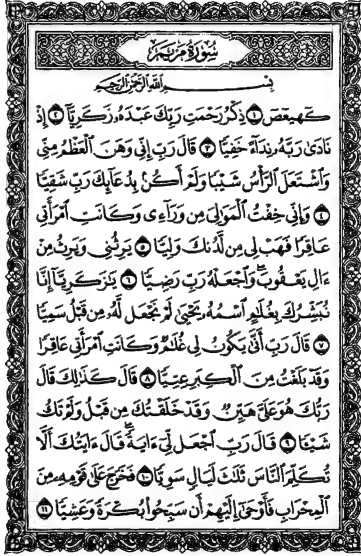 سُورَةُ مَرْيَمَ
بِسْمِ اللَّهِ الرَّحْمَٰنِ الرَّحِيمِ
كٓهيعٓصٓ ١ ذِكْرُ رَحْمَتِ رَبِّكَ عَبْدَهُۥ زَكَرِيَّآ ٢ إِذْ
نَادَىٰ رَبَّهُۥ نِدَآءً خَفِيًّا ٣ قَالَ رَبِّ إِنِّى وَهَنَ ٱلْعَظْمُ مِنِّى
وَٱشْتَعَلَ ٱلرَّأْسُ شَيْبًا وَلَمْ أَكُنۢ بِدُعَآئِكَ رَبِّ شَقِيًّا
٤ وَإِنِّى خِفْتُ ٱلْمَوَٰلِىَ مِن وَرَآءِى وَكَانَتِ ٱمْرَأَتِى
عَاقِرًا فَهَبْ لِى مِن لَّدُنكَ وَلِيًّا ٥ يَرِثُنِى وَيَرِثُ مِنْ
ءَالِ يَعْقُوبَ وَٱجْعَلْهُ رَبِّ رَضِيًّا ٦ يَٰزَكَرِيَّآ إِنَّا
نُبَشِّرُكَ بِغُلَٰمٍ ٱسْمُهُۥ يَحْيَىٰ لَمْ نَجْعَل لَّهُۥ مِن قَبْلُ سَمِيًّا
٧ قَالَ رَبِّ أَنَّىٰ يَكُونُ لِى غُلَٰمٌ وَكَانَتِ ٱمْرَأَتِى عَاقِرًا
وَقَدْ بَلَغْتُ مِنَ ٱلْكِبَرِ عِتِيًّا ٨ قَالَ كَذَٰلِكَ قَالَ
رَبُّكَ هُوَ عَلَىَّ هَيِّنٌ وَقَدْ خَلَقْتُكَ مِن قَبْلُ وَلَمْ تَكُ
شَيْـًٔا ٩ قَالَ رَبِّ ٱجْعَل لِّىٓ ءَايَةً قَالَ ءَايَتُكَ أَلَّا
تُكَلِّمَ ٱلنَّاسَ ثَلَٰثَ لَيَالٍ سَوِيًّا ١٠ فَخَرَجَ عَلَىٰ قَوْمِهِۦ مِنَ
ٱلْمِحْرَابِ فَأَوْحَىٰٓ إِلَيْهِمْ أَن سَبِّحُوا۟ بُكْرَةً وَعَشِيًّا ١١